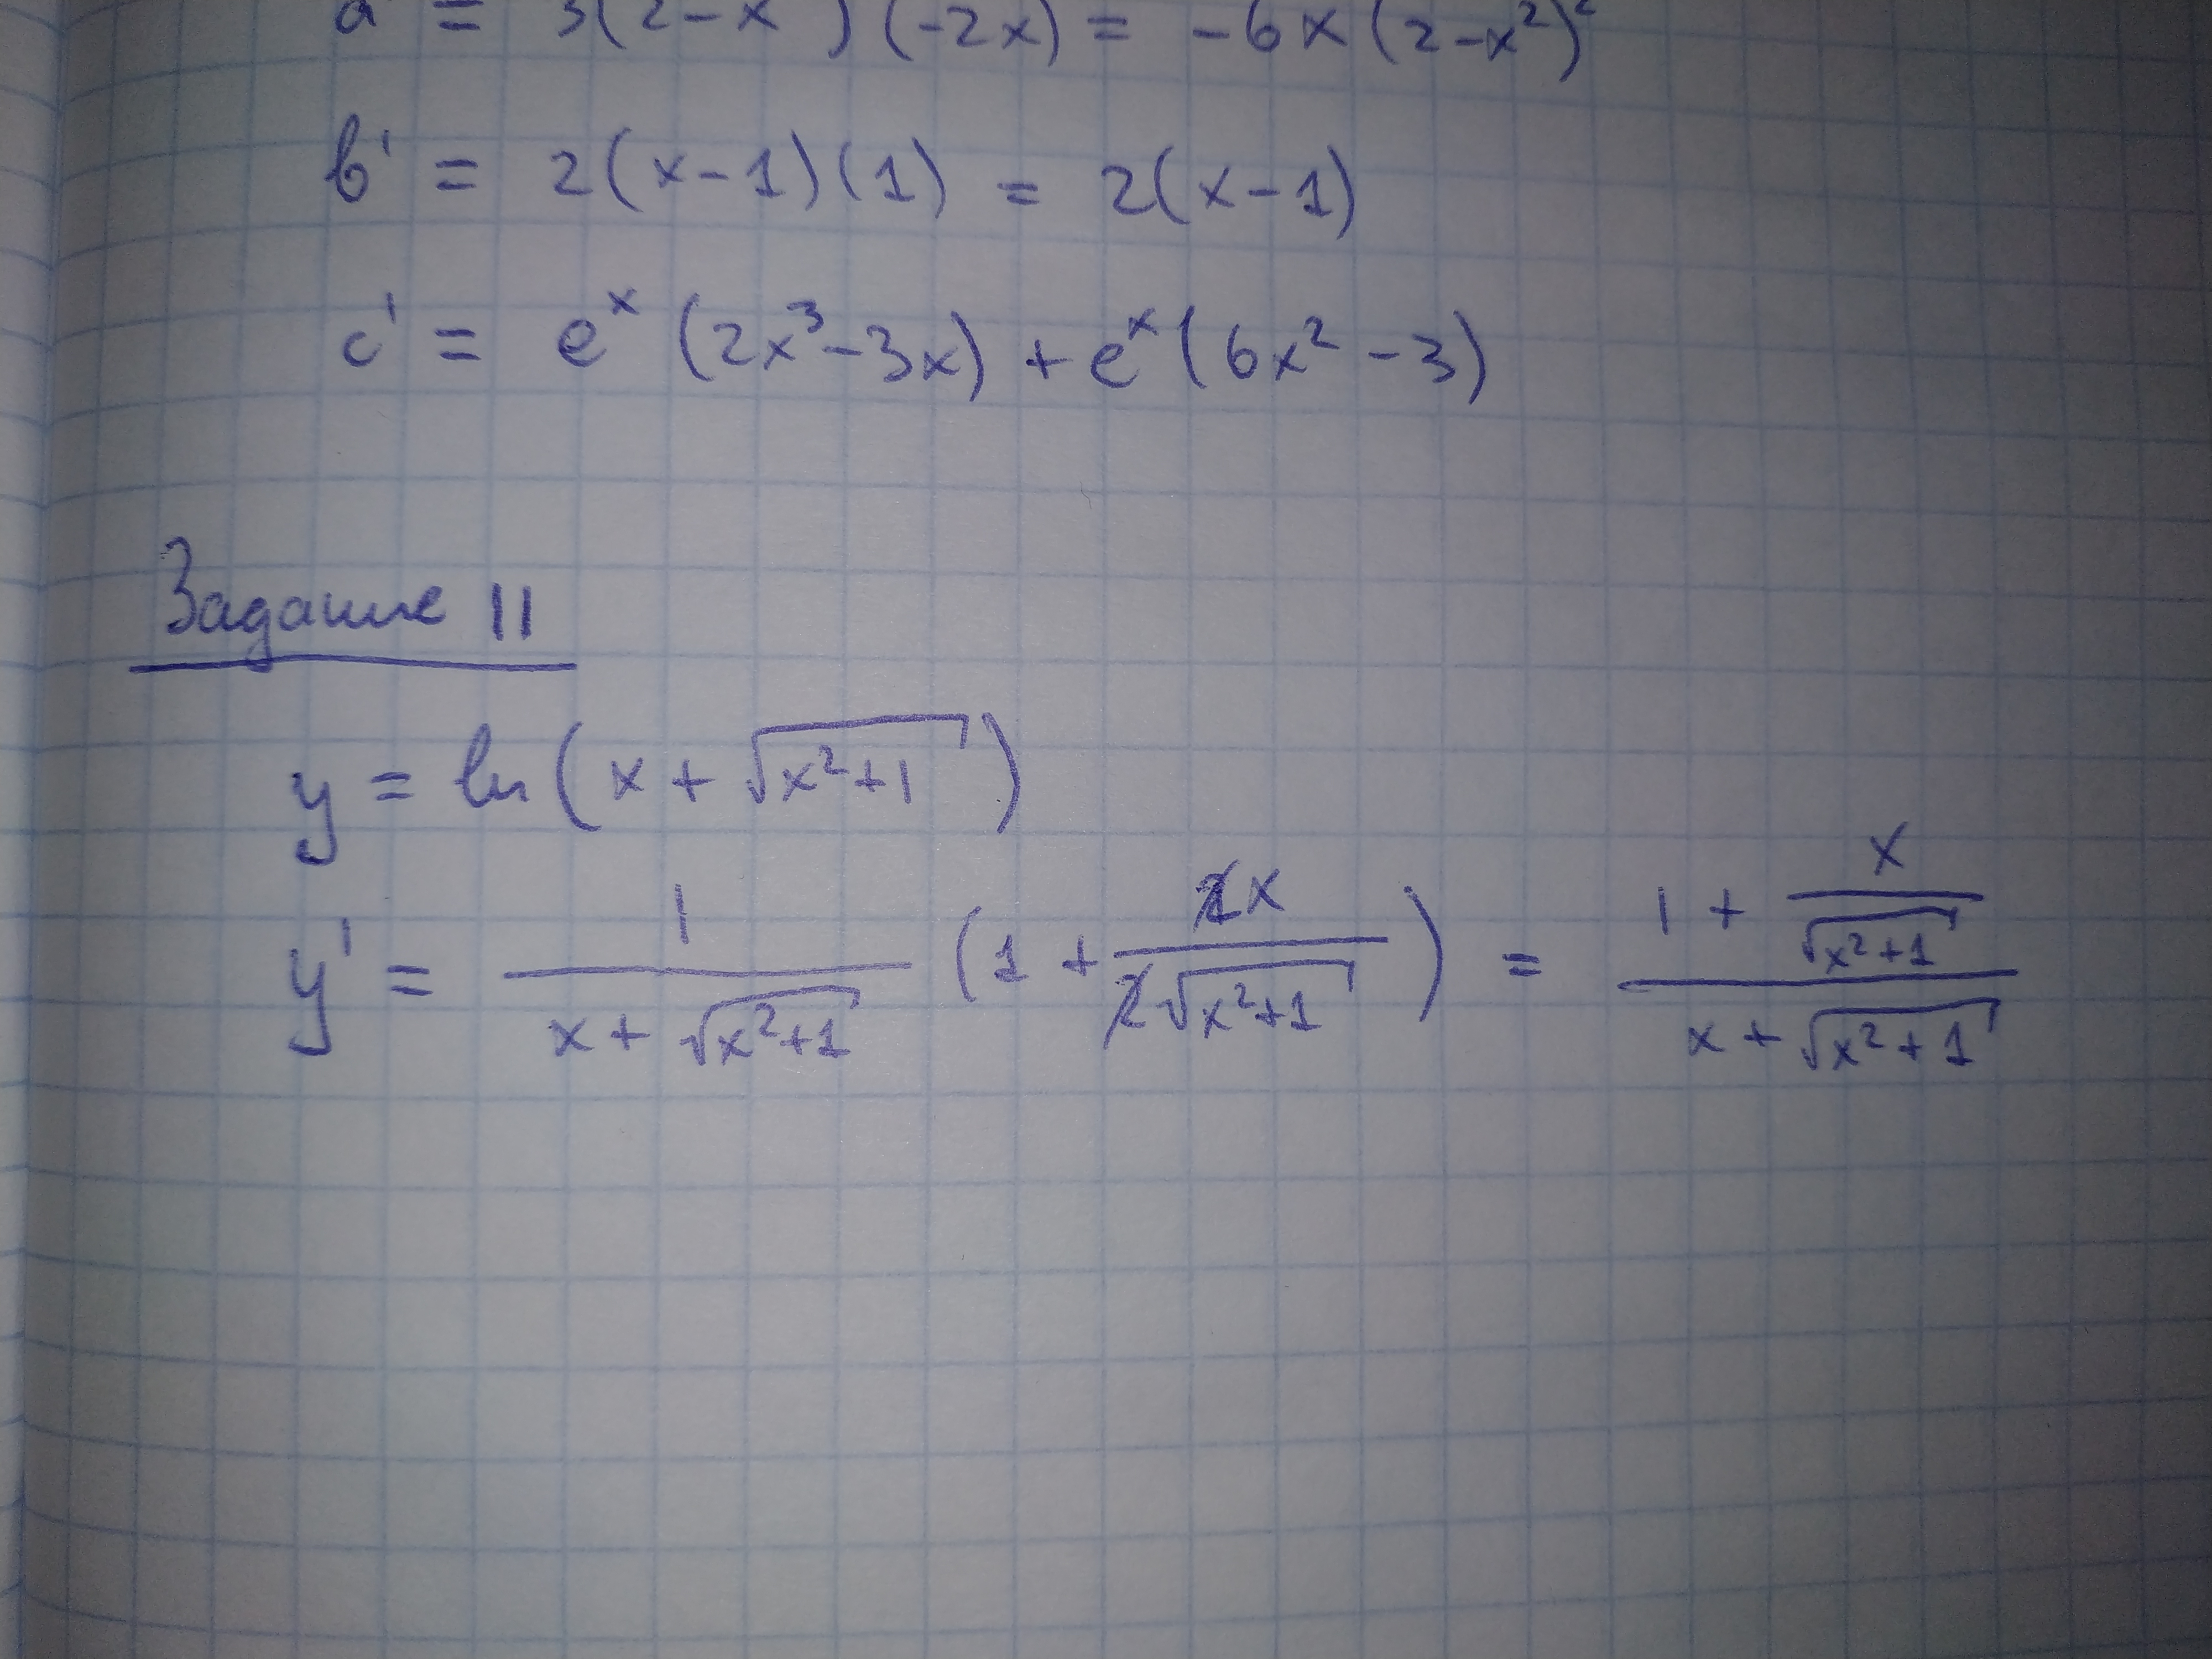 a' = 3(2-x )(-2x) = -6x(2-x²)²
b' = 2(x-1)(1) = 2(x-1)
c' = eˣ(2x³-3x) + eˣ(6x²-3)
Задание 11
y = ln(x+√(x²+1))
y' = 1/(x+√(x²+1)) (1+2x/(2√(x²+1))) = (1+x/√(x²+1))/(x+√(x²+1))